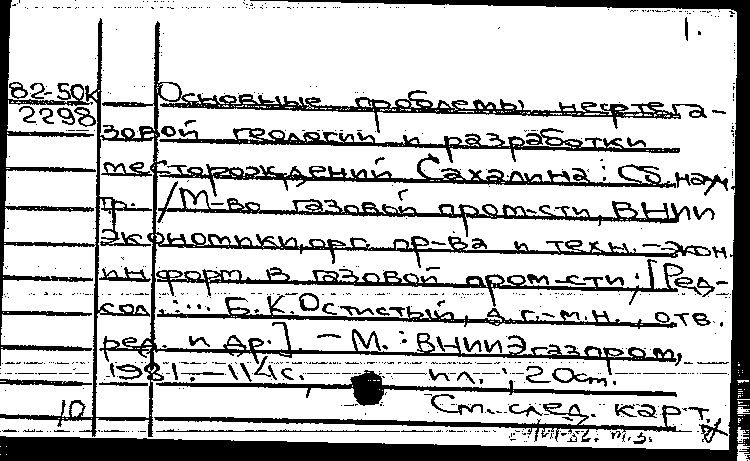 1.
82-50к Основные проблемы нефтега-
2298 зовой геологии и разработки
месторождений Сахалина: Сб. науч.
тр. / М-во газовой пром-сти, ВНИИ
экономики, орг. пр-ва и техн.-экон.
информ. в газовой пром-сти; [Ред-
кол.: ... Б.К.Остистый, д.г.-м.н., отв.
ред. и др.]. - М.: ВНИИЭгазпром,
1981. - 114с. ил.; 20см.
10 См. след. карт.